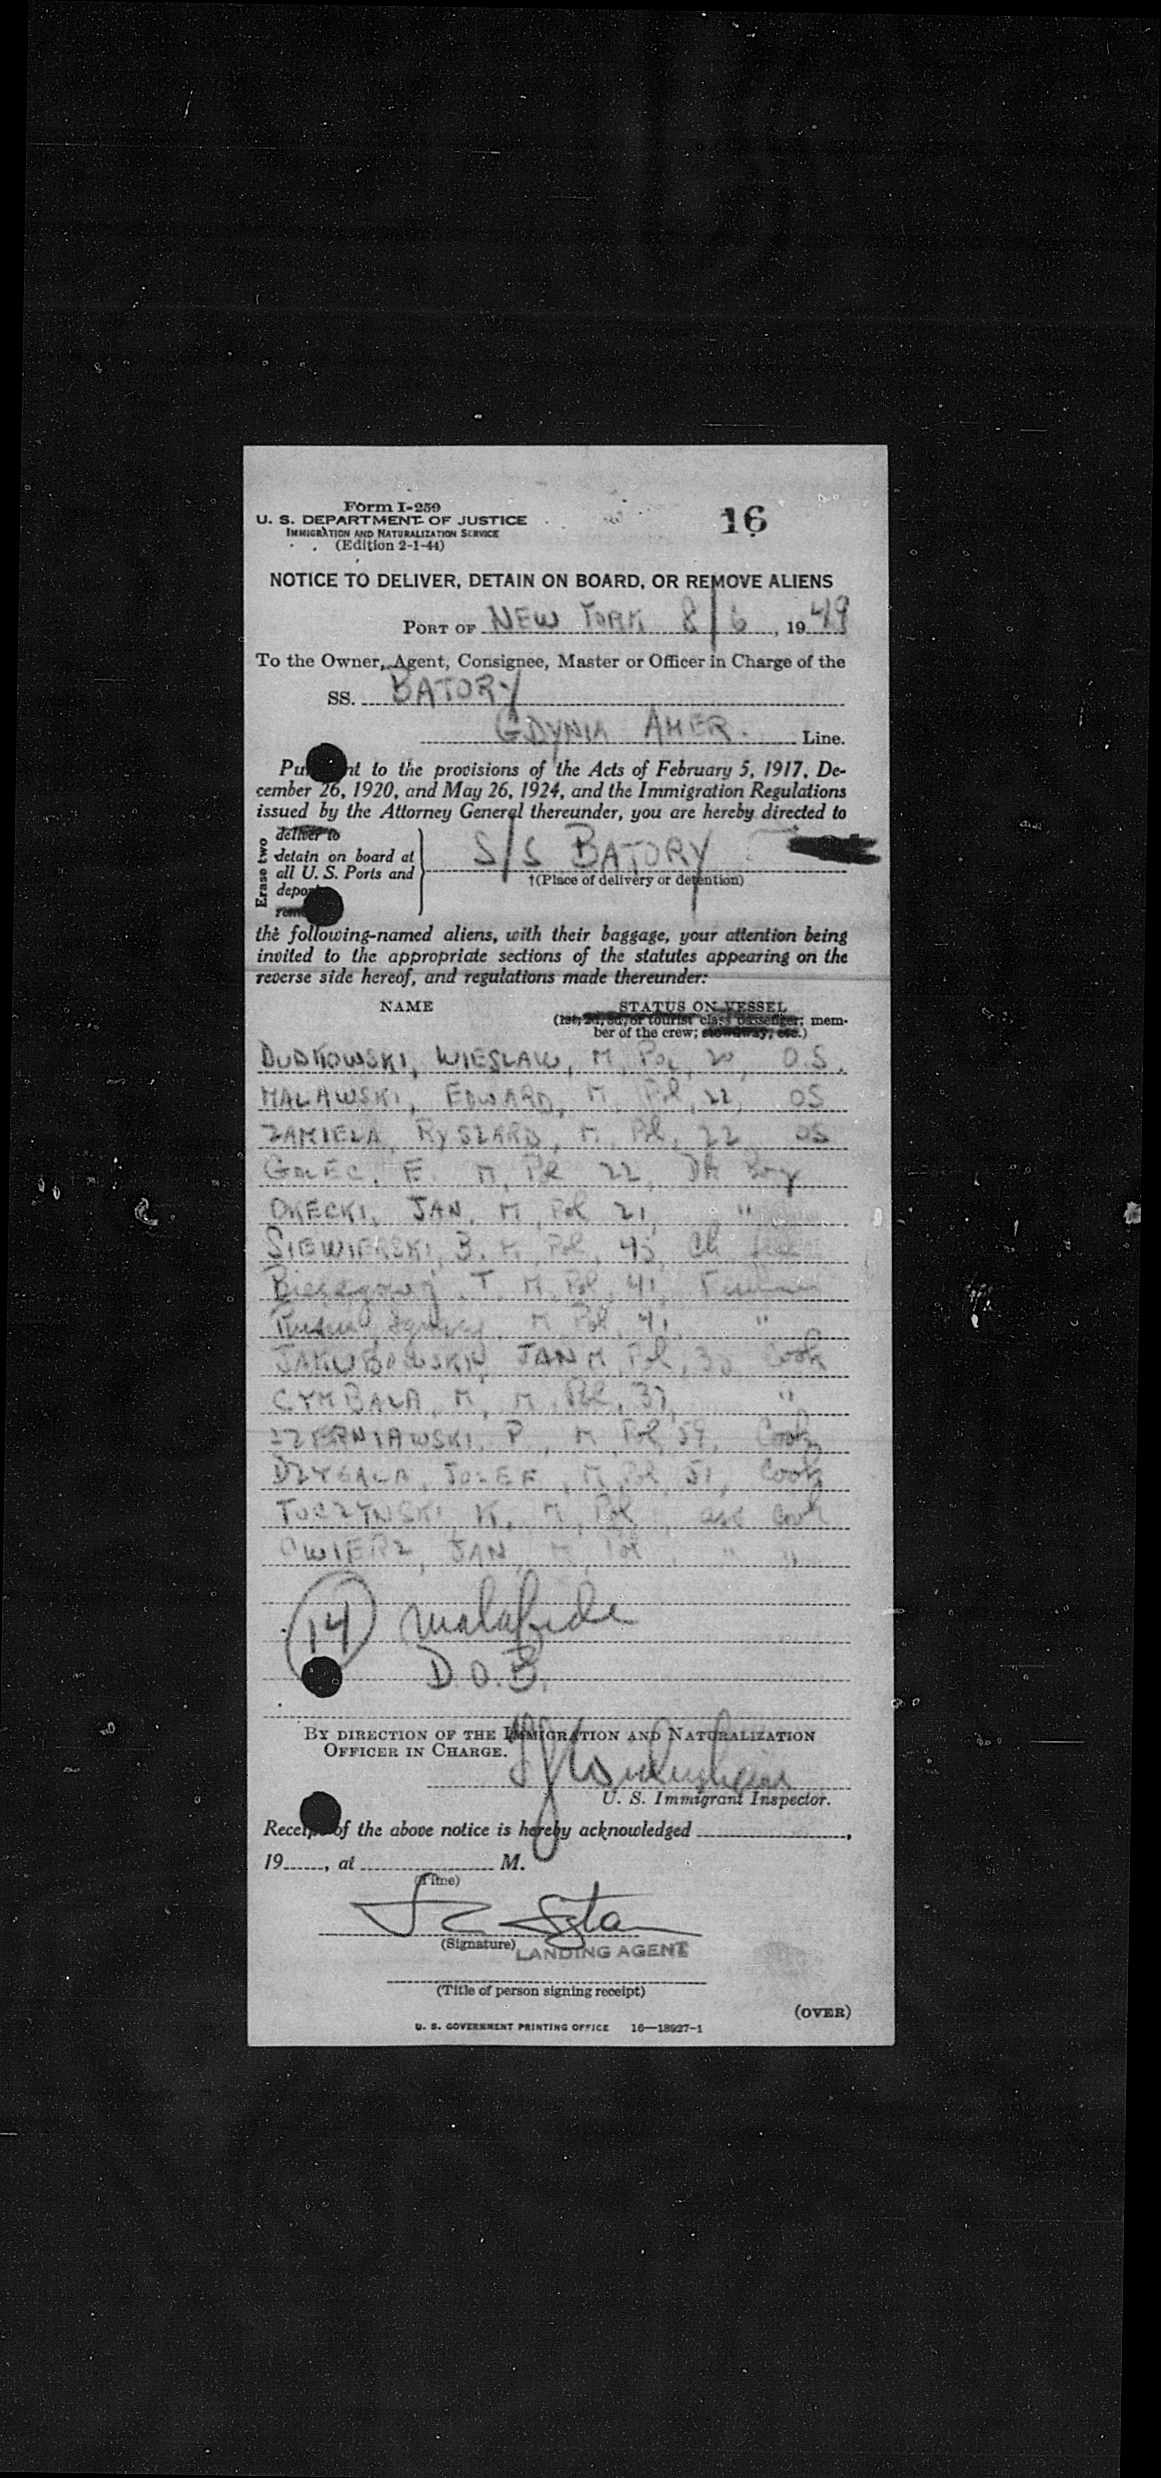 Form I-259
U. S. DEPARTMENT OF JUSTICE
IMMIGRATION AND NATURALIZATION SERVICE
(Edition 2-1-44)
16
NOTICE TO DELIVER, DETAIN ON BOARD, OR REMOVE ALIENS
PORT OF NEW YORK 8/6, 1949
To the Owner, Agent, Consignee, Master or Officer in Charge of the
SS. BATORY
GDYNIA AMER. Line.
to the provisions of the Acts of February 5, 1917, De-
cember 26, 1920, and May 26, 1924, and the Immigration Regulations
issued by the Attorney General thereunder, you are hereby directed to
Erase two
deliver to
detain on board at
all U. S. Ports and
S/S BATORY
†(Place of delivery or detention)
the following-named aliens, with their baggage, your attention being
invited to the appropriate sections of the statutes appearing on the
reverse side hereof, and regulations made thereunder:
NAME
STATUS ON VESSEL
(1st, 2d, 3d, or tourist class passenger; mem-
ber of the crew; stowaway, etc.)
DUDKOWSKI, WIESLAW, M, Pol, 20, O.S.
MALAWSKI, EDWARD, M, Pol, 22, OS
ZAMIELA, RYSZARD, M, Pol, 22 OS
GOLEC, E. M, Pol 22, Boy
OKECKI, JAN, M, Pol 21, "
SIEWIERSKI, B. M, Pol, Ch
T. M, Pol, 41,
M, Pol, 41, "
JAKUBOWSKI, JAN M, Pol, Cook
CYMBALA, M, M, Pol, 37, "
P, M, Pol, 59, Cook
DZYGALA, JOZEF, M, Pol, 51, Cook
TUCZYNSKI, K, M, Pol, asst cook
OWIERZ, JAN, M, Pol, " "
14 malafide
D.O.B.
BY DIRECTION OF THE IMMIGRATION AND NATURALIZATION
OFFICER IN CHARGE.
U. S. Immigrant Inspector.
Receipt of the above notice is hereby acknowledged ,
19 , at M.
(Time)
(Signature) LANDING AGENT
(Title of person signing receipt)
(OVER)
U. S. GOVERNMENT PRINTING OFFICE 16—18927-1